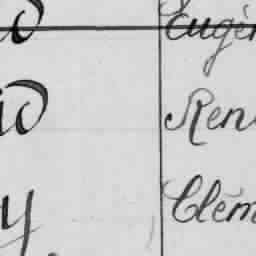 Eugèn
id Ren
y Clém